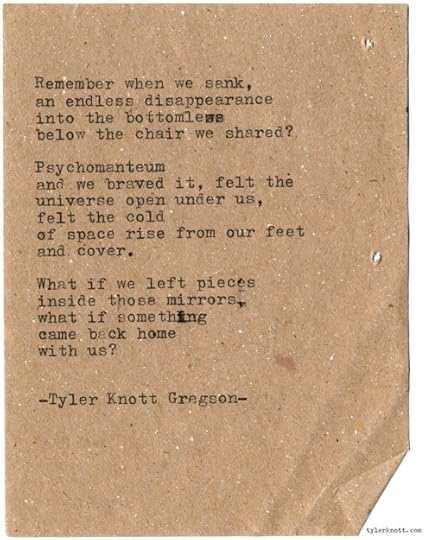 Remember when we sank,
an endless disappearance
into the bottomless
below the chair we shared?
Psychomanteum
and we braved it, felt the
universe open under us,
felt the cold
of space rise from our feet
and cover.
What if we left pieces
inside those mirrors,
what if something
came back home
with us?
-Tyler Knott Gregson-
tylerknott.com